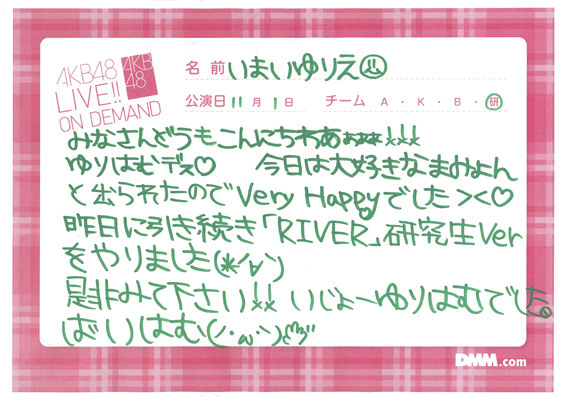 AKB48
LIVE!!
ON DEMAND
AKB
48
名 前 いまいゆりえ
公演日 11月1日 チーム A・K・B・研
みなさんどうもこんにちわあぁぁぁ!!!
ゆりはむデス♡ 今日は大好きなまみょん
と出られたのでVery Happyでした><♡
昨日に引き続き「RIVER」研究生Ver
をやりました(*´v`)
是非みて下さい!! いじょーゆりはむでした。
ばいはむ(/・ω・\)
DMM.com